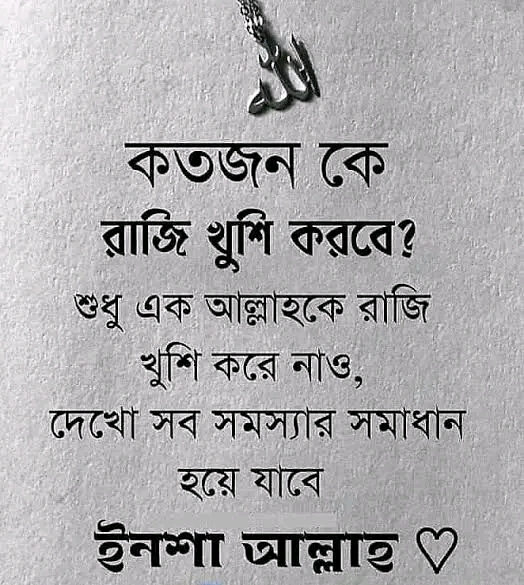 الله
কতজন কে
রাজি খুশি করবে?
শুধু এক আল্লাহকে রাজি
খুশি করে নাও,
দেখো সব সমস্যার সমাধান
হয়ে যাবে
ইনশা আল্লাহ ♡